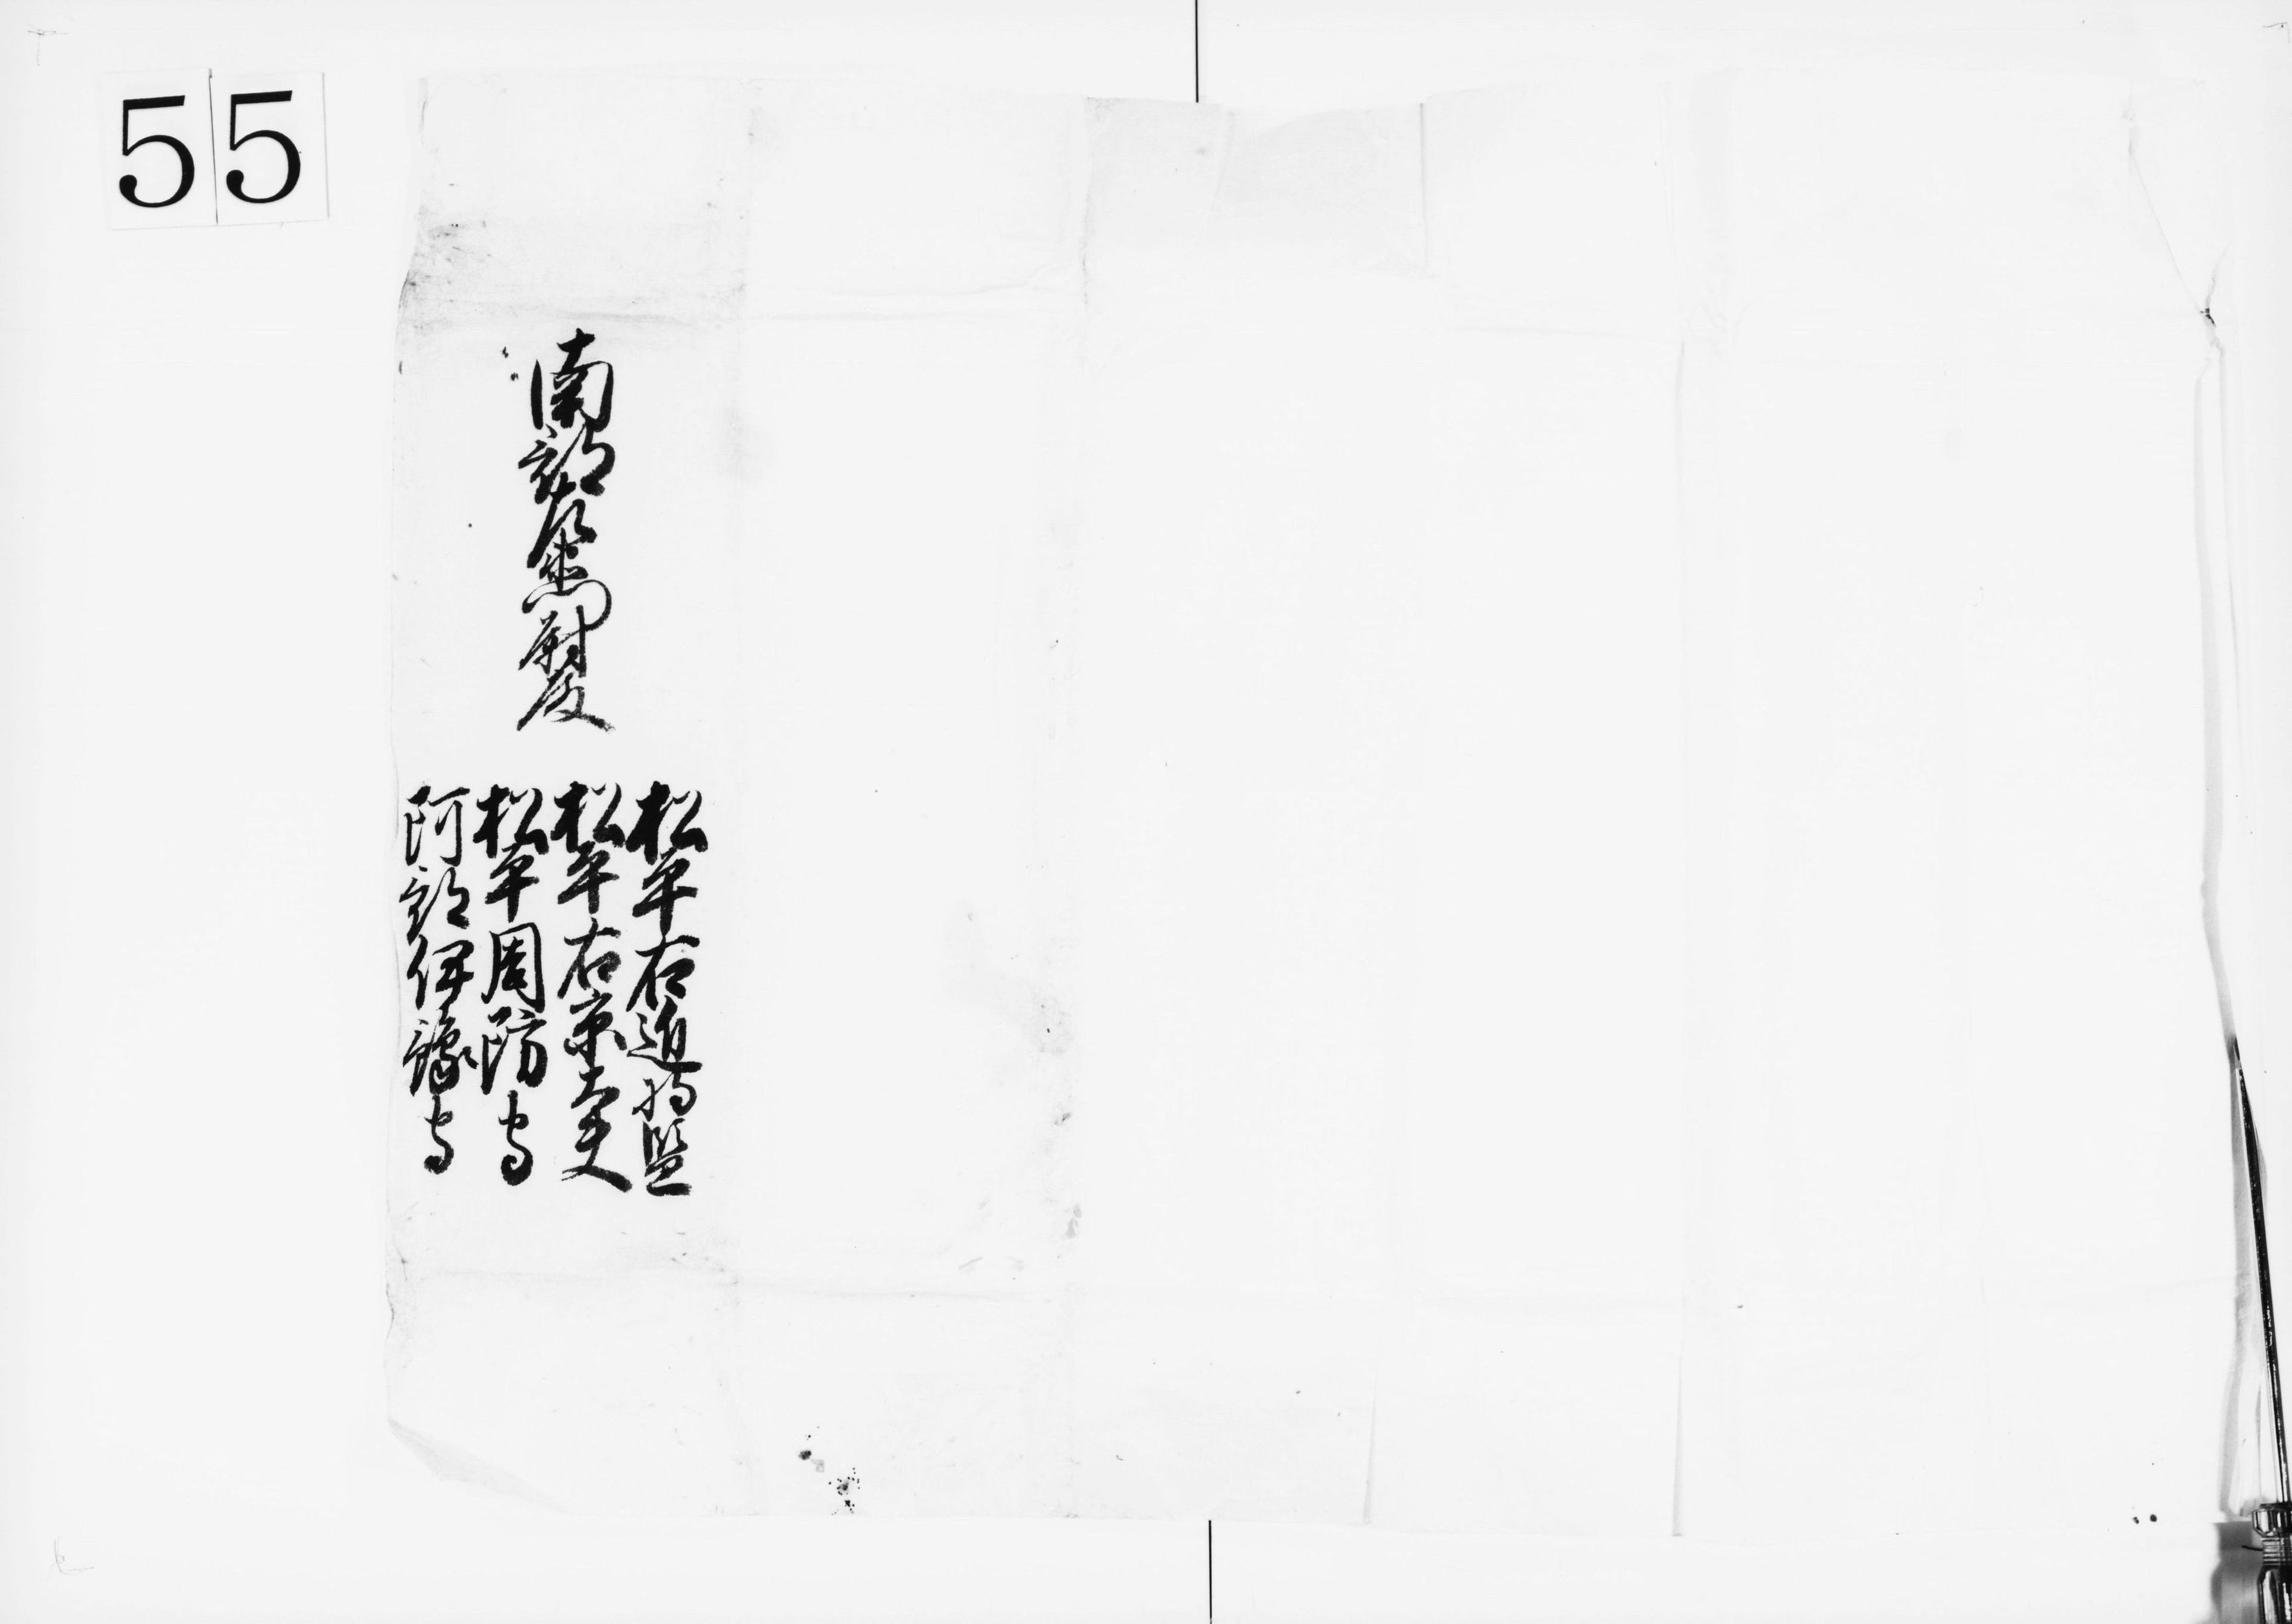 55
南部左衛門尉殿
松平右近将監
松平右京大夫
松平周防守
阿部伊豫守